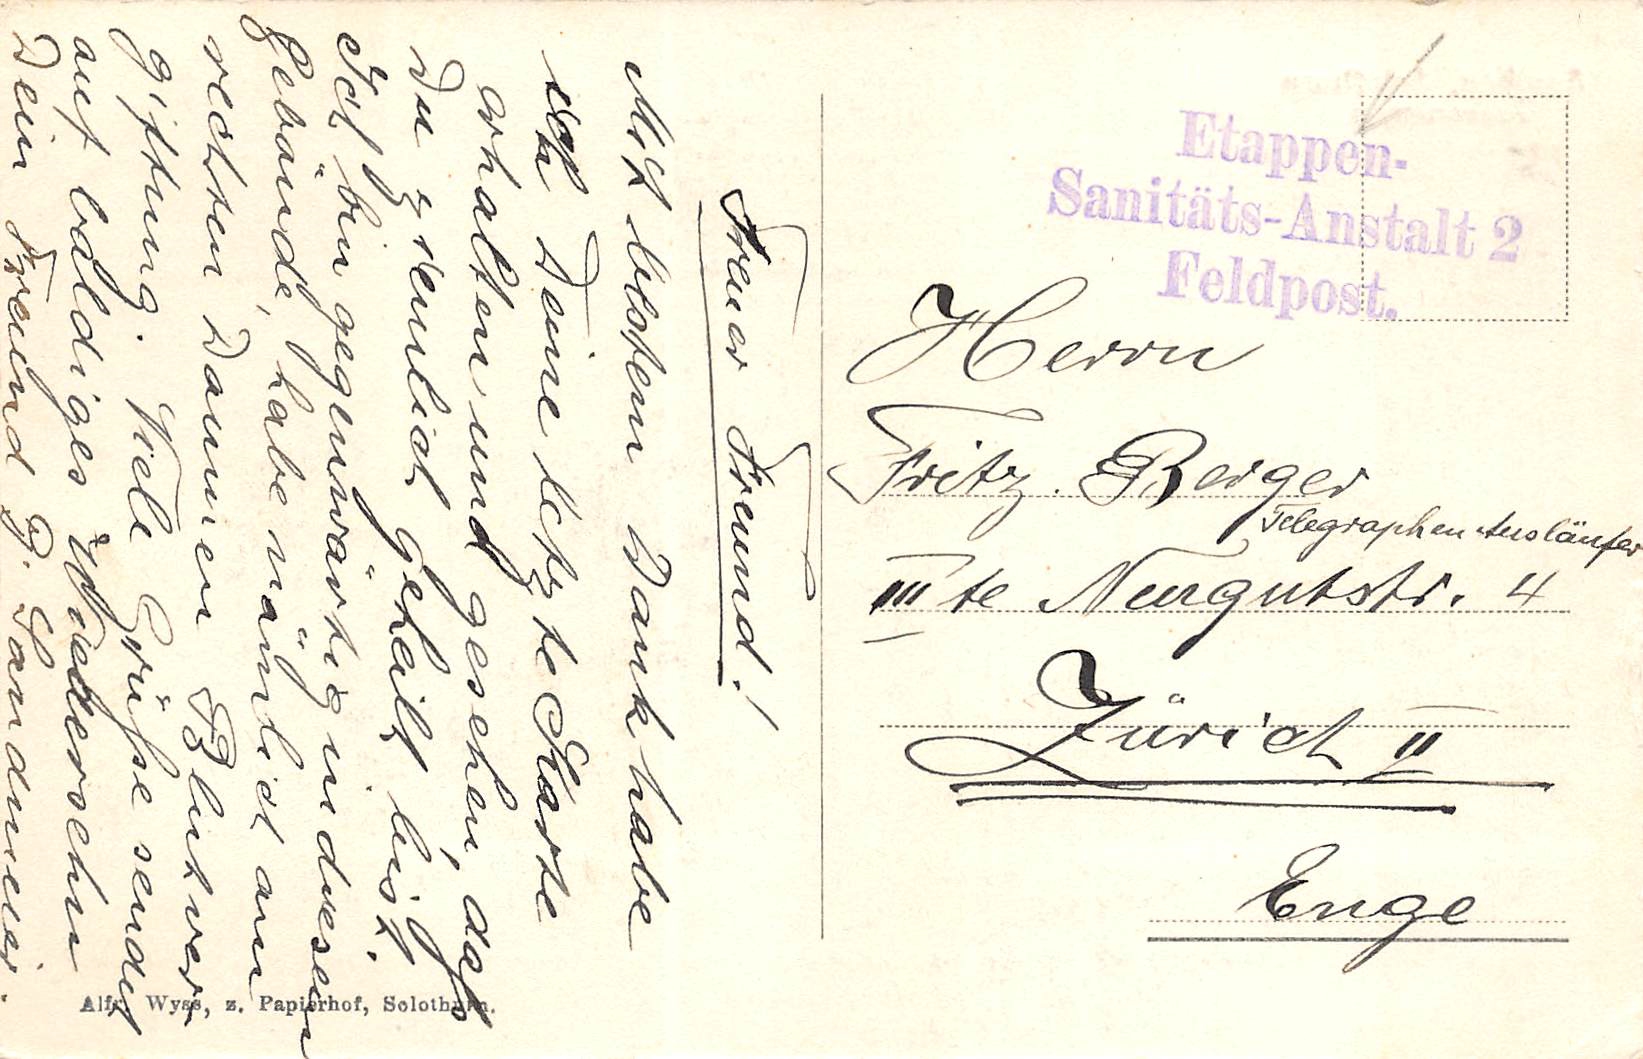 Treuer Freund!
Mit bestem Dank habe
ich Deine letzte Karte
erhalten und gesehen, daß
Du ziemlich geheilt bist.
Ich bin gegenwärtig in diesem
Gebäude, habe nämlich am
rechten Daumen Blutver-
giftung. Viele Grüße sendet
auf baldiges Wiedersehn
Dein Freund G. Landmeier.
Etappen-
Sanitäts-Anstalt 2
Feldpost.
Herrn
Fritz Berger
Telegraphen Ausläufer
III te Neugutstr. 4
Zürich II
Enge
Alfr. Wyss, z. Papierhof, Solothurn.